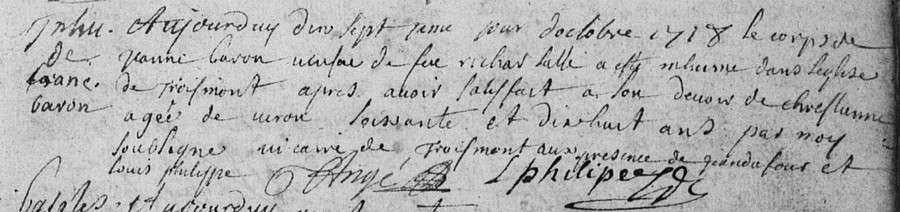 Inhu. Aujourduy dix sept jeme jour doctobre 1718 le corps de
de jeanne baron veufve de feu richar lallé a esté inhumé dans leglise
jeane. de troismont apres avoir satisfait a son devoir de chrestienne
baron agée de viron soissante et dix huit ans par moy
soubsigne vicaire de troismont aux presence de et
louis philippe Angé L philipee
Aujourduy